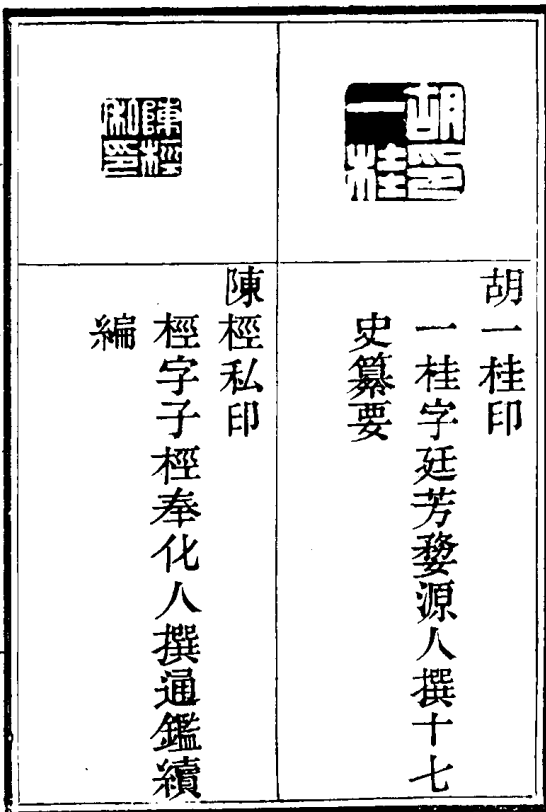 胡印
一桂
胡一桂印
一桂字廷芳婺源人撰十七
史纂要
陳桱
私印
陳桱私印
桱字子桱奉化人撰通鑑續
編